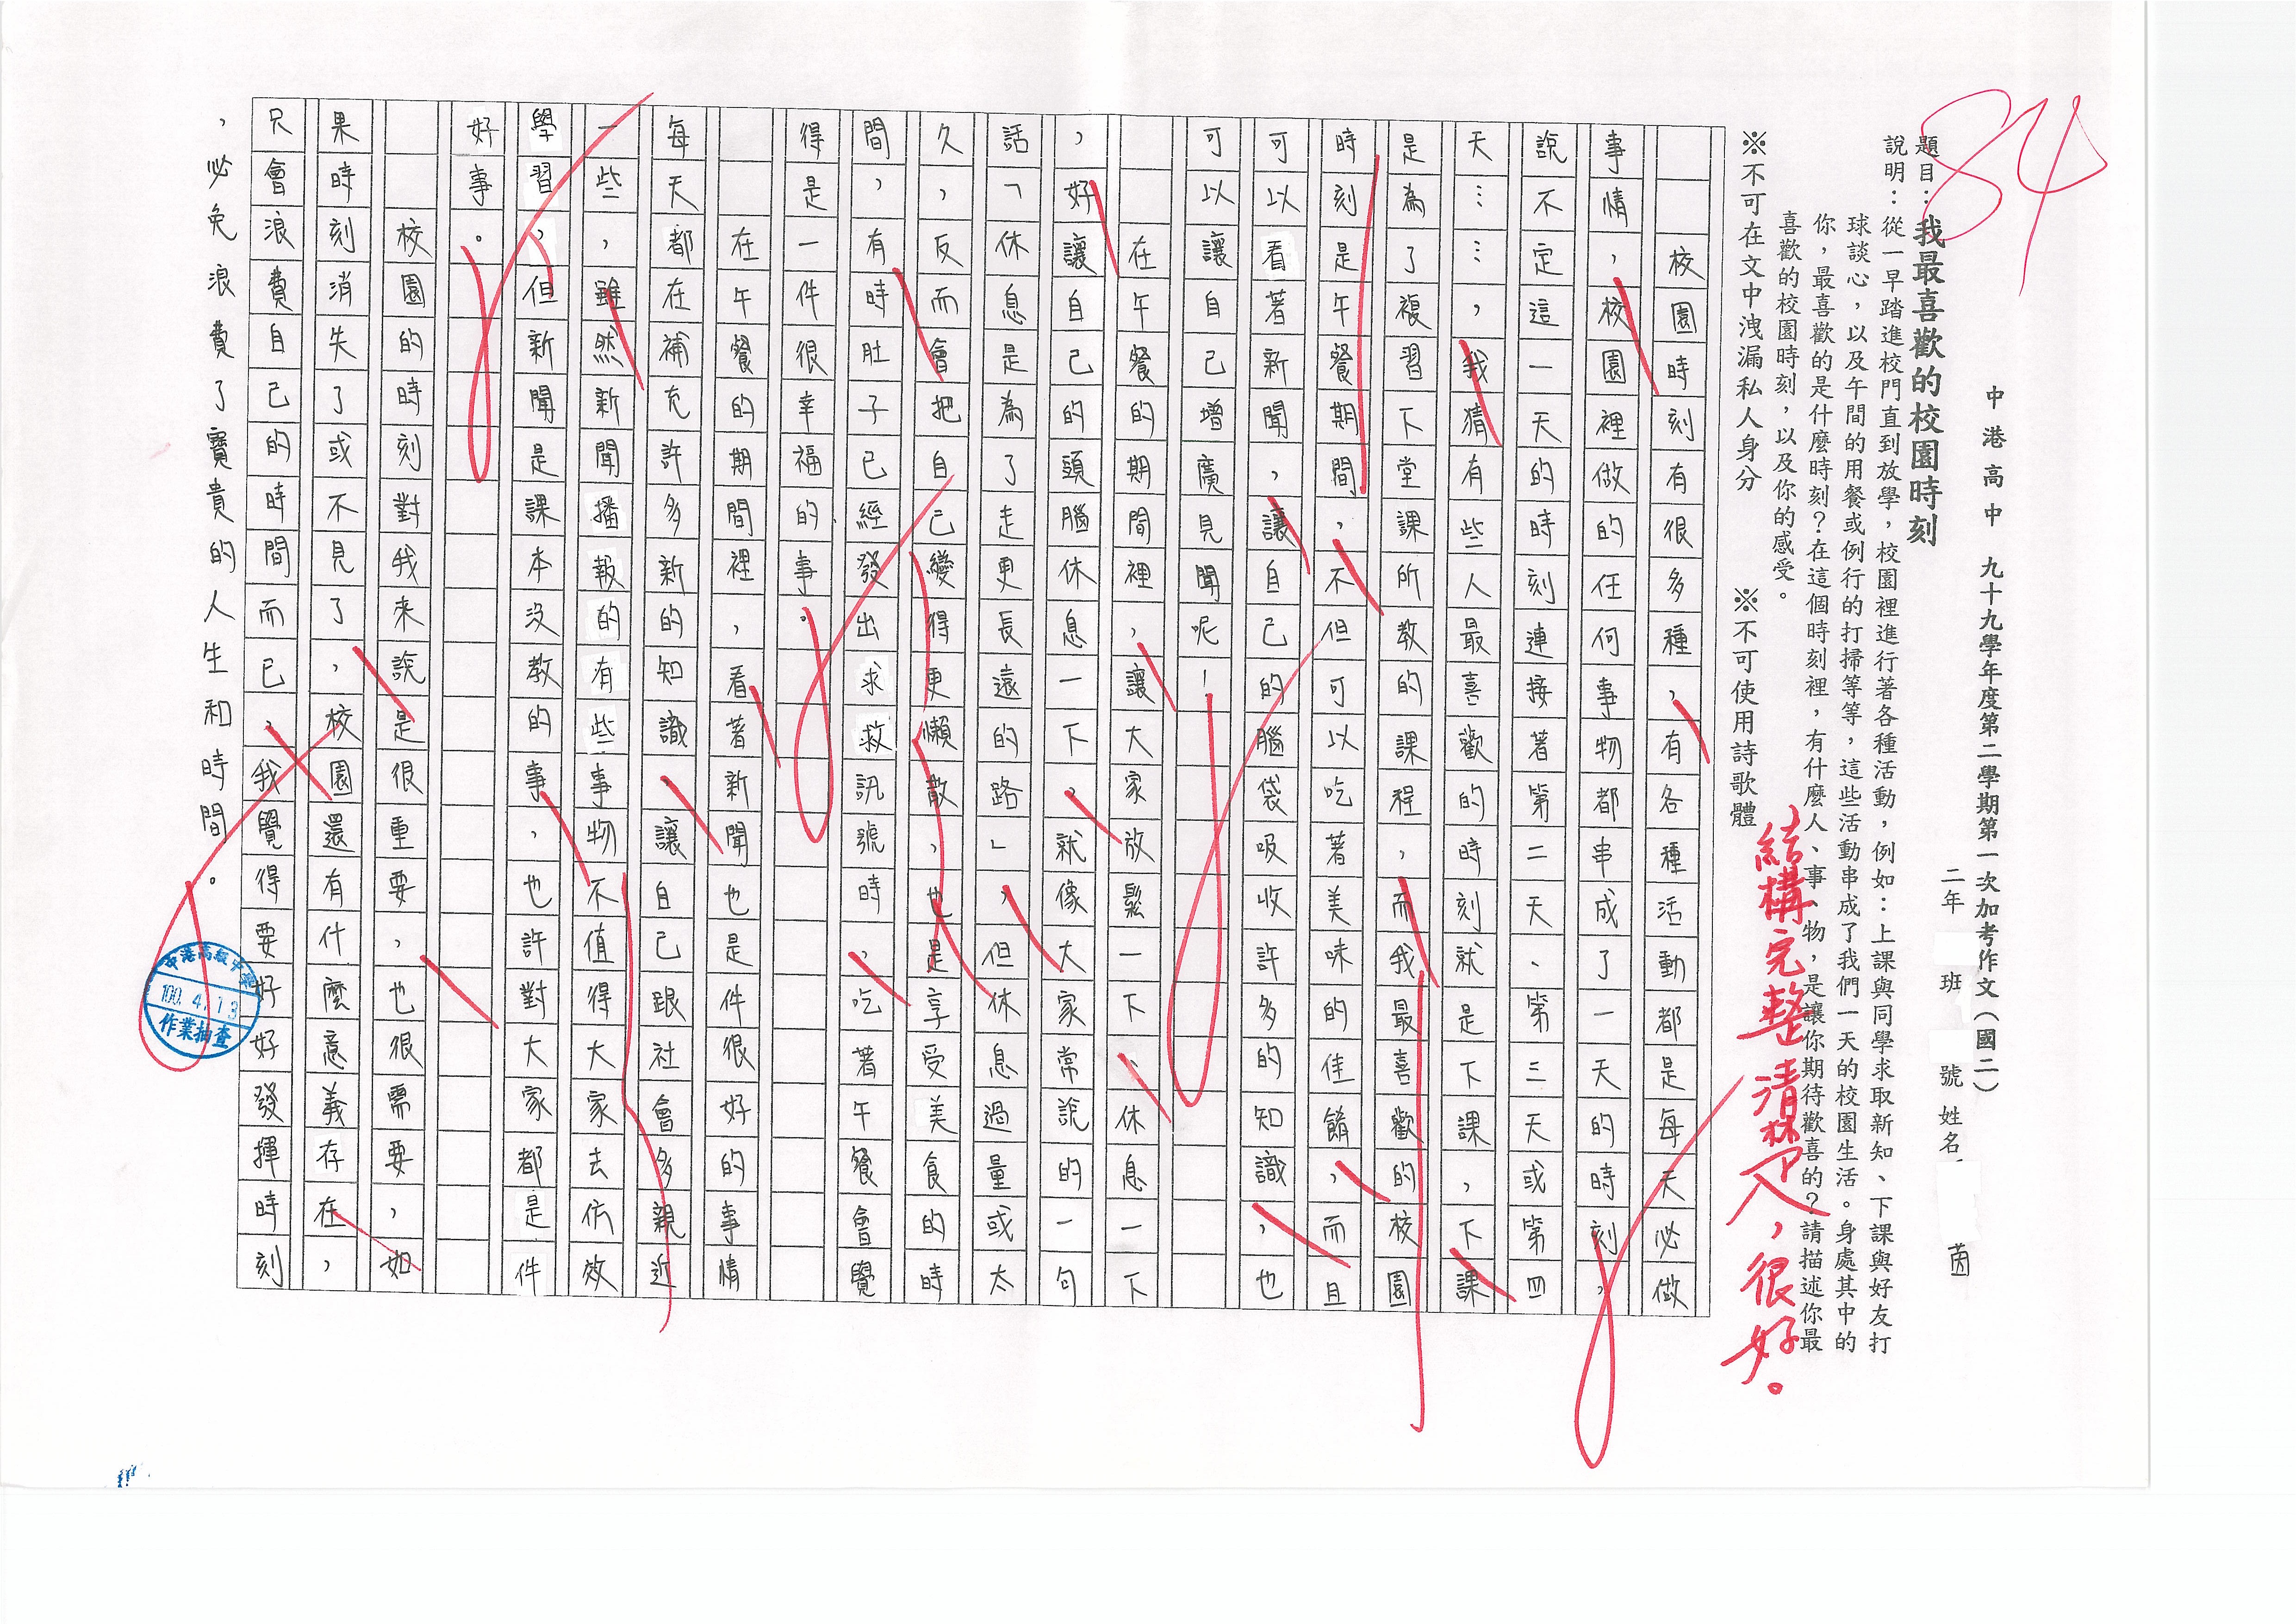 84
中港高中　九十九學年度第二學期第一次加考作文（國二）
二年　班　號 姓名　茵
題目：我最喜歡的校園時刻
說明：從一早踏進校門直到放學，校園裡進行著各種活動，例如：上課與同學求取新知、下課與好友打
球談心，以及午間的用餐或例行的打掃等等，這些活動串成了我們一天的校園生活。身處其中的
你，最喜歡的是什麼時刻？在這個時刻裡，有什麼人、事、物，是讓你期待歡喜的？請描述你最
喜歡的校園時刻，以及你的感受。
※不可在文中洩漏私人身分　※不可使用詩歌體
結構完整清楚，很好。
校園時刻有很多種，有各種活動都是每天必做
事情，校園裡做的任何事物都串成了一天的時刻，
說不定這一天的時刻連接著第二天、第三天或第四
天……，我猜有些人最喜歡的時刻就是下課，下課
是為了複習下堂課所教的課程，而我最喜歡的校園
時刻是午餐期間，不但可以吃著美味的佳餚，而且
可以看著新聞，讓自己的腦袋吸收許多的知識，也
可以讓自己增廣見聞呢！
在午餐的期間裡，讓大家放鬆一下、休息一下
，好讓自己的頭腦休息一下，就像大家常說的一句
話「休息是為了走更長遠的路」，但休息過量或太
久，反而會把自己變得更懶散，也是享受美食的時
間，有時肚子已經發出求救訊號時，吃著午餐會覺
得是一件很幸福的事。
在午餐的期間裡，看著新聞也是件很好的事情
每天都在補充許多新的知識，讓自己跟社會多親近
一些，雖然新聞播報的有些事物不值得大家去仿效
學習，但新聞是課本沒教的事，也許對大家都是件
好事。
校園的時刻對我來說是很重要，也很需要，如
果時刻消失了或不見了，校園還有什麼意義存在，
只會浪費自己的時間而已，我覺得要好好發揮時刻
，必免浪費了寶貴的人生和時間。
100. 4. 13
作業抽查